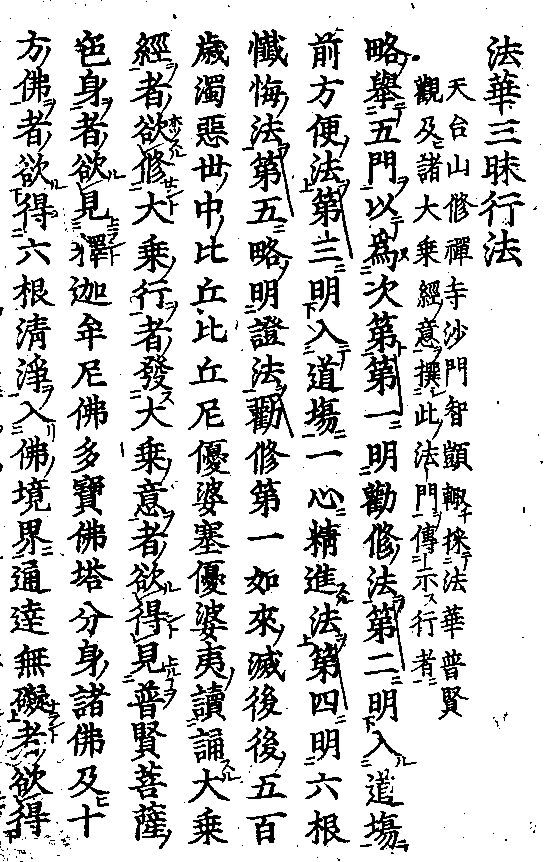 法華三昧行法
天台山修禪寺沙門智顗輙採法華普賢
觀及諸大乘經意撰此法門傳示行者
略舉五門以爲次第第一明勸修法第二明入道場
前方便法第三明入道場一心精進法第四明六根
懺悔法第五略明證法勸修第一如來滅後後五百
歲濁惡世中比丘比丘尼優婆塞優婆夷讀誦大乘
經者欲修大乘行者發大乘意者欲得見普賢菩薩
色身者欲見釋迦牟尼佛多寶佛塔分身諸佛及十
方佛者欲得六根清淨入佛境界通達無礙者欲得